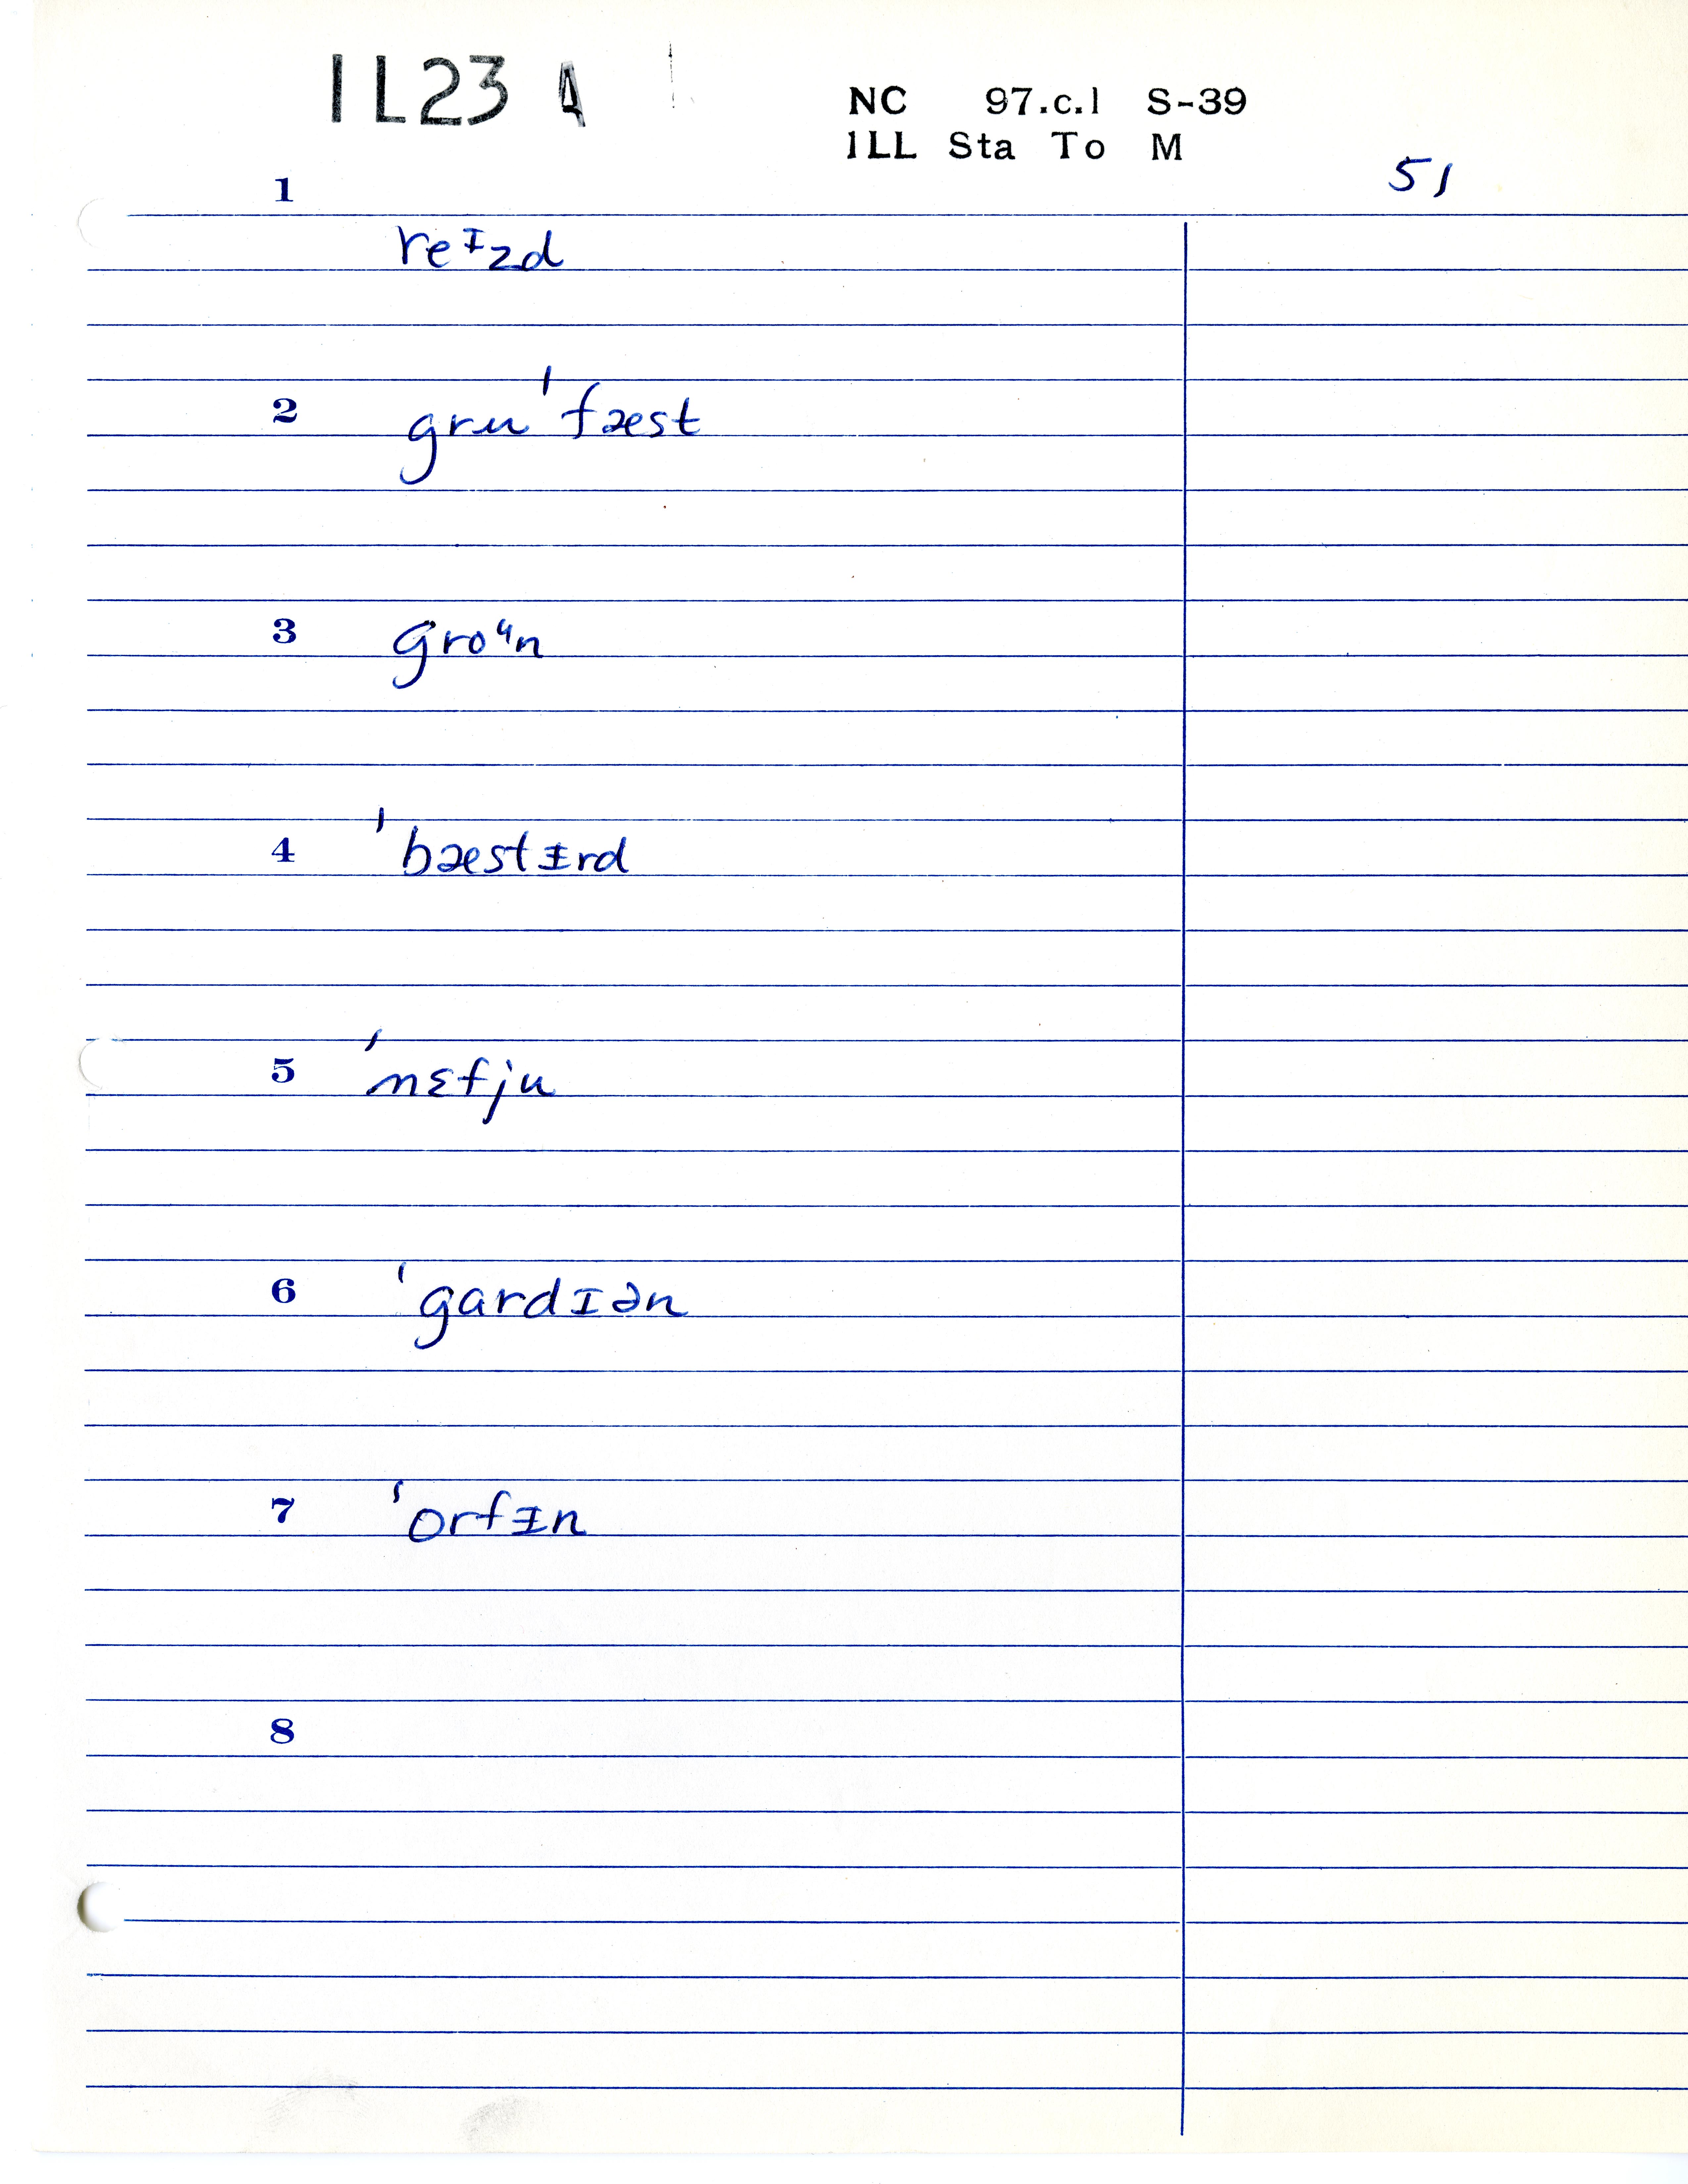 IL23
NC 97.c.1 S-39
ILL Sta To M
51
1
reᶦzd
2 gruˈfæst
3 groᶸn
4 ˈbæstᵻrd
5 ˈnɛfju
6 ˈgardɪən
7 ˈorfᵻn
8